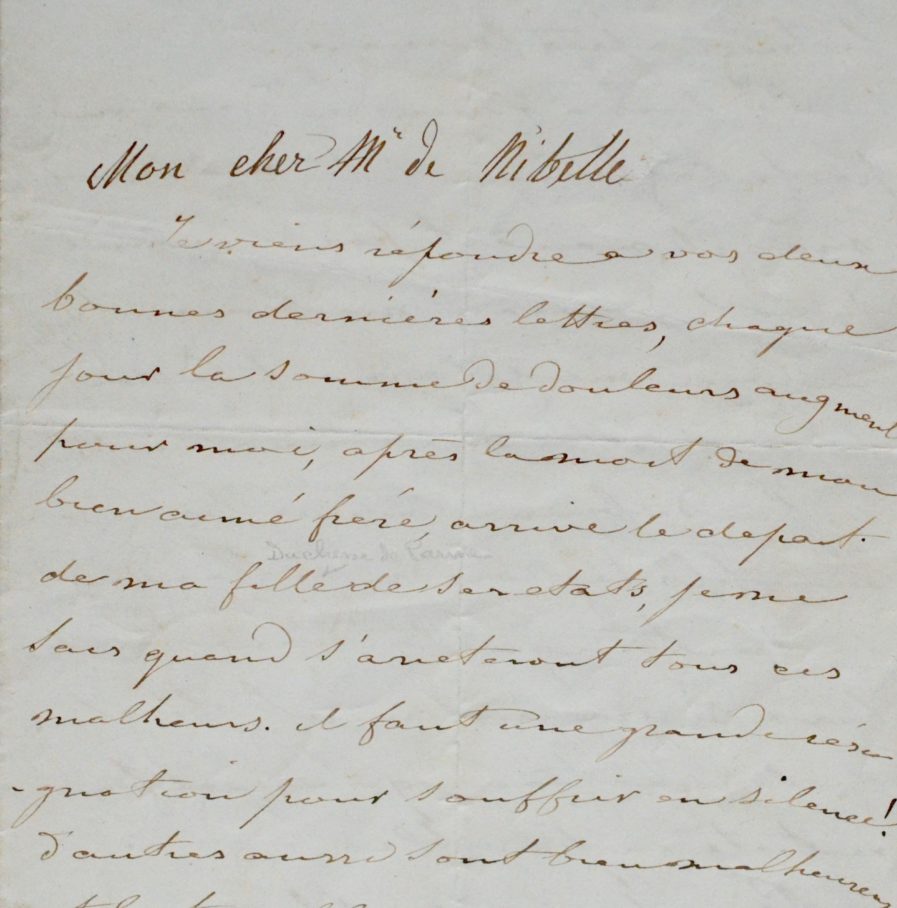 Mon cher Mr de Nibelle
Je viens répondre a vos deux
bonnes dernières lettres, chaque
jour la somme de douleurs augment
pour moi, après la mort de mon
bien aimé frére, arrive le depart
Duchesse de Parme
de ma fille de ses etats, je ne
sais quand s'arreteront tous ces
malheurs. il faut une grande rési
-gnation pour souffrir en silence!
d'autres aussi sont bien malheureux